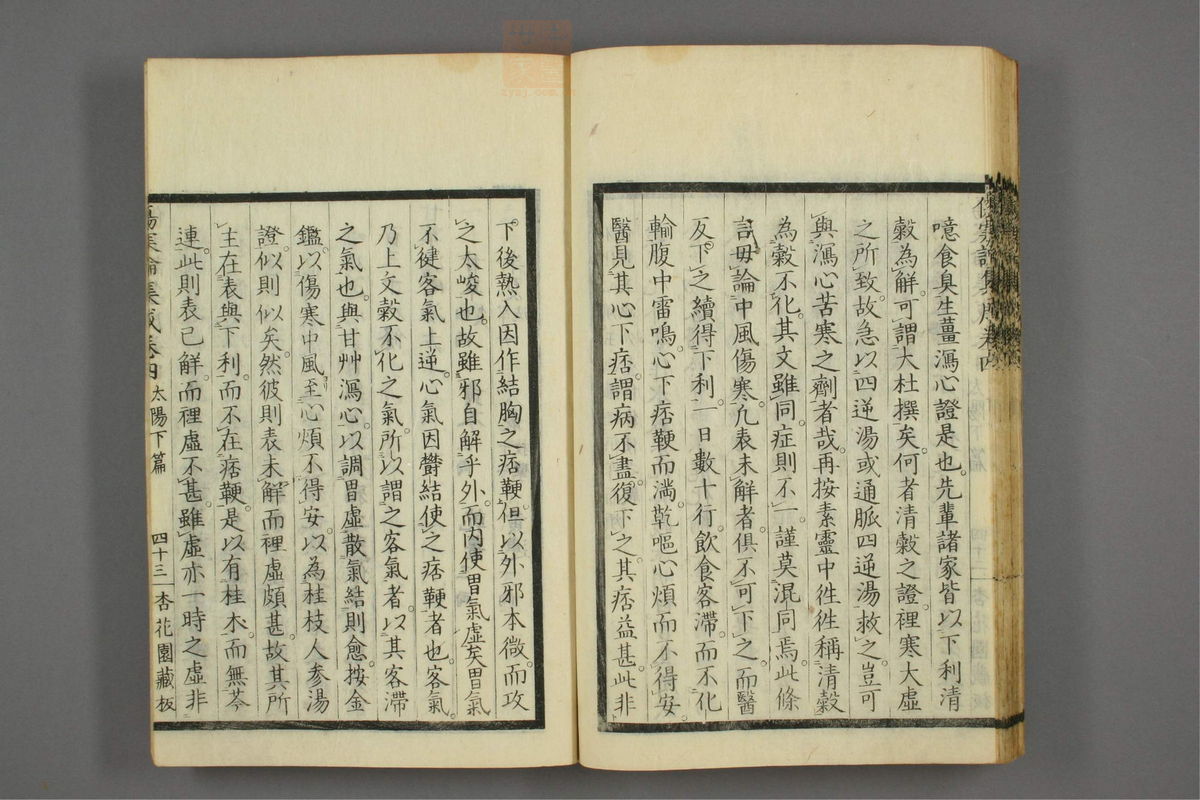 噫食臭生薑瀉心證是也先輩諸家皆以下利清
穀為解可謂大杜撰矣何者清穀之證裡寒大虛
之所致故急以四逆湯或通脈四逆湯救之豈可
與瀉心苦寒之劑者哉再按素靈中徃徃稱清穀
為穀不化其文雖同症則不一謹莫混同焉此條
論中風傷寒凢表未解者俱不可下之而醫
反下之續得下利一日數十行飲食客滯而不化
輸腹中雷鳴心下痞鞕而滿乾嘔心煩而不得安
醫見其心下痞謂病不盡復下之其痞益甚此非
下後熱入因作結胸之痞鞕但以外邪本微而攻
之太峻也故雖邪自解乎外而内使胃氣虛矣胃氣
不健客氣上逆心氣因欝結使之痞鞕者也客氣
乃上文穀不化之氣所以謂之客氣者以其客滯
之氣也與甘艸瀉心以調胃虛散氣結則愈按金
鑑以傷寒中風至心煩不得安以為桂枝人参湯
證似則似矣然彼則表未解而裡虛頗甚故其所
主在表與下利而不在痞鞕是以有桂朩而無芩
連此則表已解而裡虛不甚雖虛亦一時之虛非
傷寒論集成卷四 太陽下篇 四十三 杏花園藏板